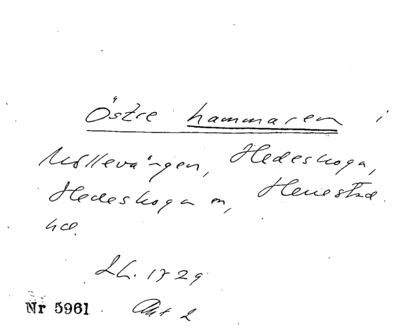 Östre hammaren i
Möllevången, Hedeskoga,
Hedeskoga sn, Herrestad
hd.
L.h. 1729
Akt 2
Nr 5961